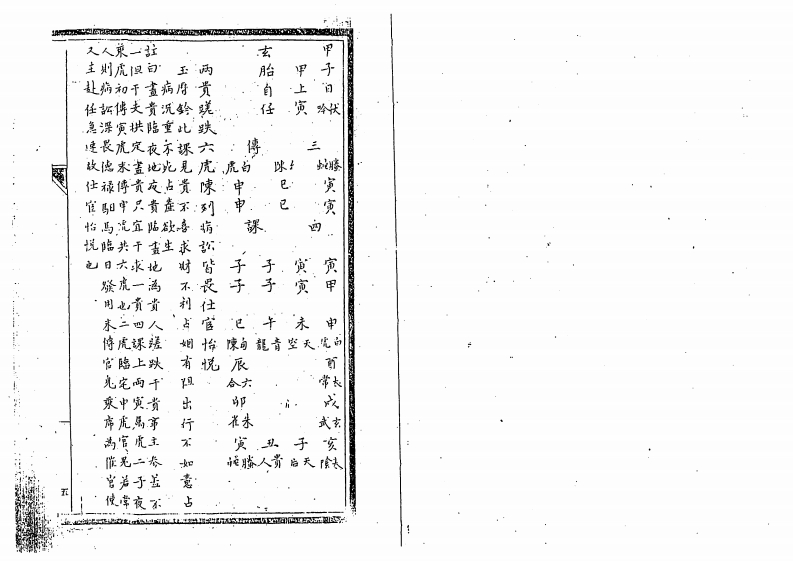 甲子日伏吟
甲上寅
玄胎自任
三傳
螣蛇寅寅
勾陳巳巳
白虎申申
四課
寅甲
寅寅
子子
子子
申白虎 未天空 午青龍 巳勾陳
酉太常 辰六合
戌玄武 卯朱雀
亥太陰 子天后 丑貴人 寅螣蛇
兩貴蹉跌六虎陳列病訟皆畏仕官怡悅
玉府鈐此課見貴不喜求財不利占姻有阻出行不如意占
病沉重示此占蠱欲生
註曰晝貴臨夜地夜貴臨晝地為貴人蹉跌干貴事主參差不
一但干夫拱定晝貴只宜干求一貴四課上兩寅屬虎二子夜
乘虎初傳寅虎末傳申流共六虎也二虎臨定申虎官鬼若常
人則病訟深畏德祿馹馬臨日發用末傳官鬼乘虎為催官使
又主赴任急速故仕官怡悅也
五